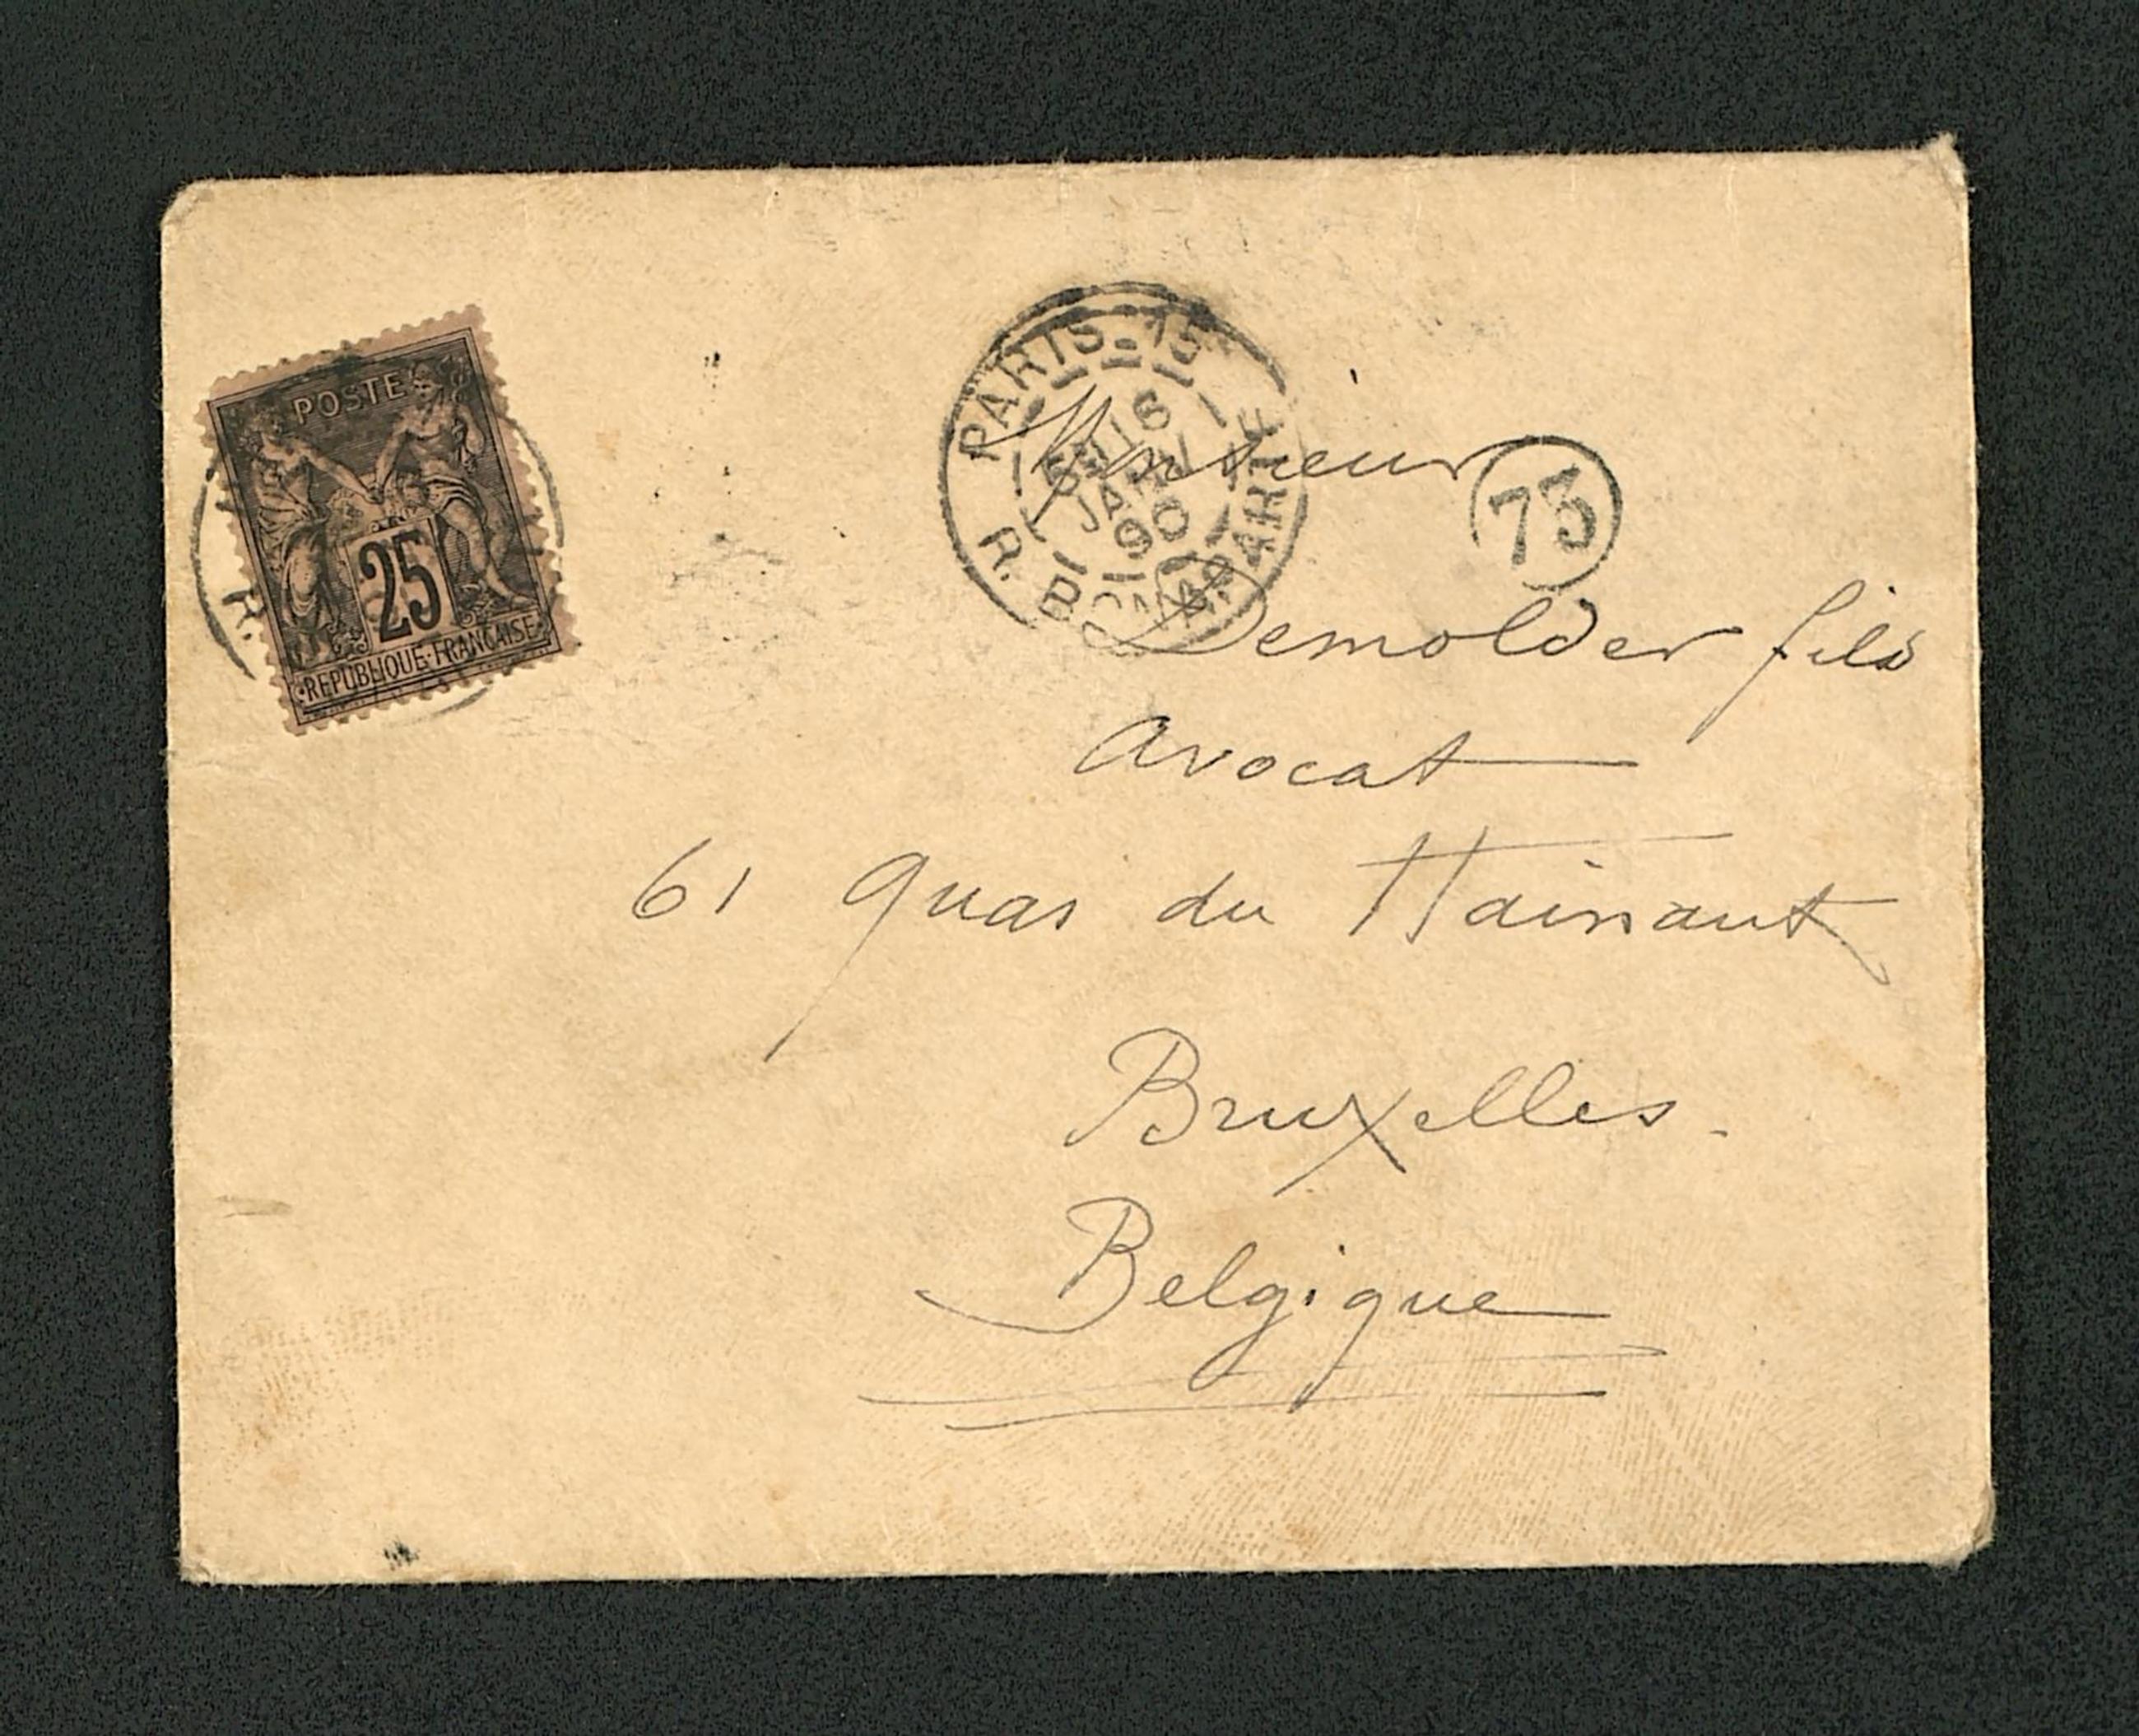 POSTE
25
REPUBLIQUE·FRANCAISE
R.
PARIS-15
6
JANV
90
R. BONAPARTE
73
Monsieur
Demolder fils
avocat
61 quai du Hainaut
Bruxelles.
Belgique